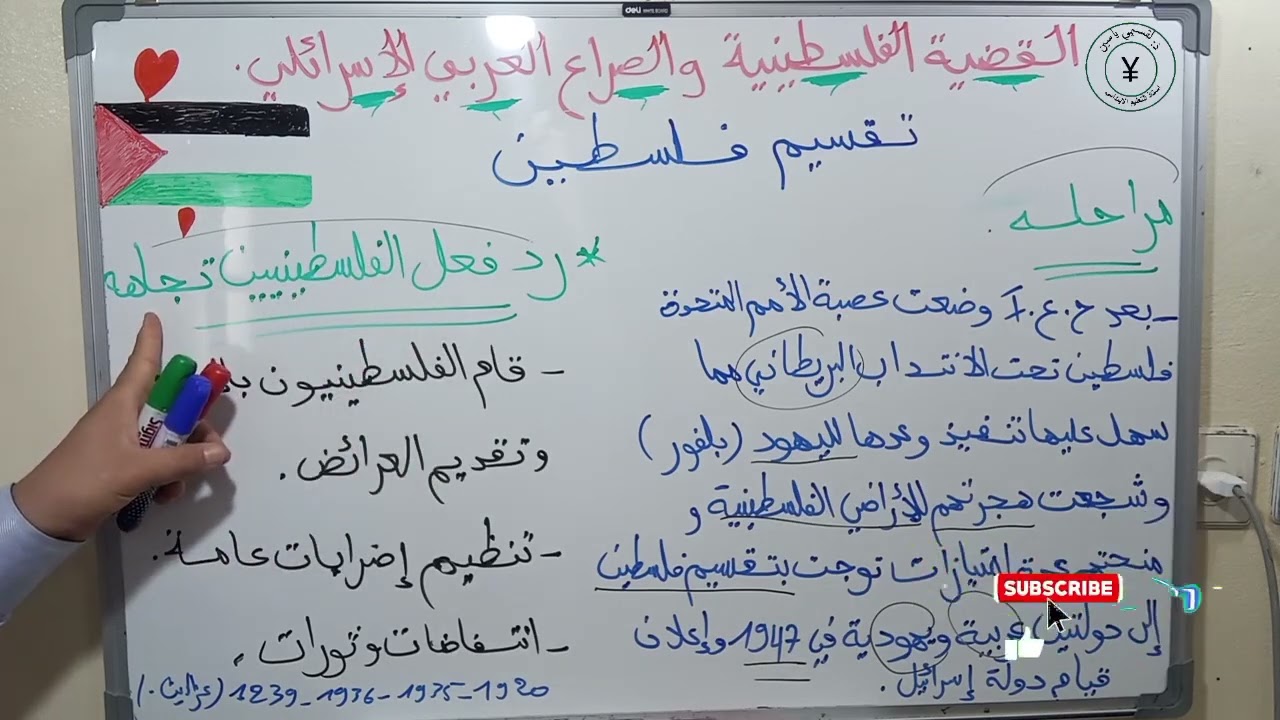 deli
القضية الفلسطينية والصراع العربي الإسرائلي.
تقسيم فلسطين
مراحله.
- بعد ح.ع.I وضعت عصبة الأمم المتحدة
فلسطين تحت الانتداب البريطاني مما
سهل عليها تنفيذ وعدها لليهود (بلفور)
وشجعت هجرتهم للأراضي الفلسطينية و
منحتهم عدة امتيازات توجت بتقسيم فلسطين
إلى دولتين عربية ويهودية في 1947 وإعلان
قيام دولة إسرائيل.
* رد فعل الفلسطينيين تجاهه
- قام الفلسطينيون
وتقديم العرائض.
- تنظيم إضرابات عامة.
- انتفاضات وثورات
1920-1935-1936-1239
SUBSCRIBE
¥